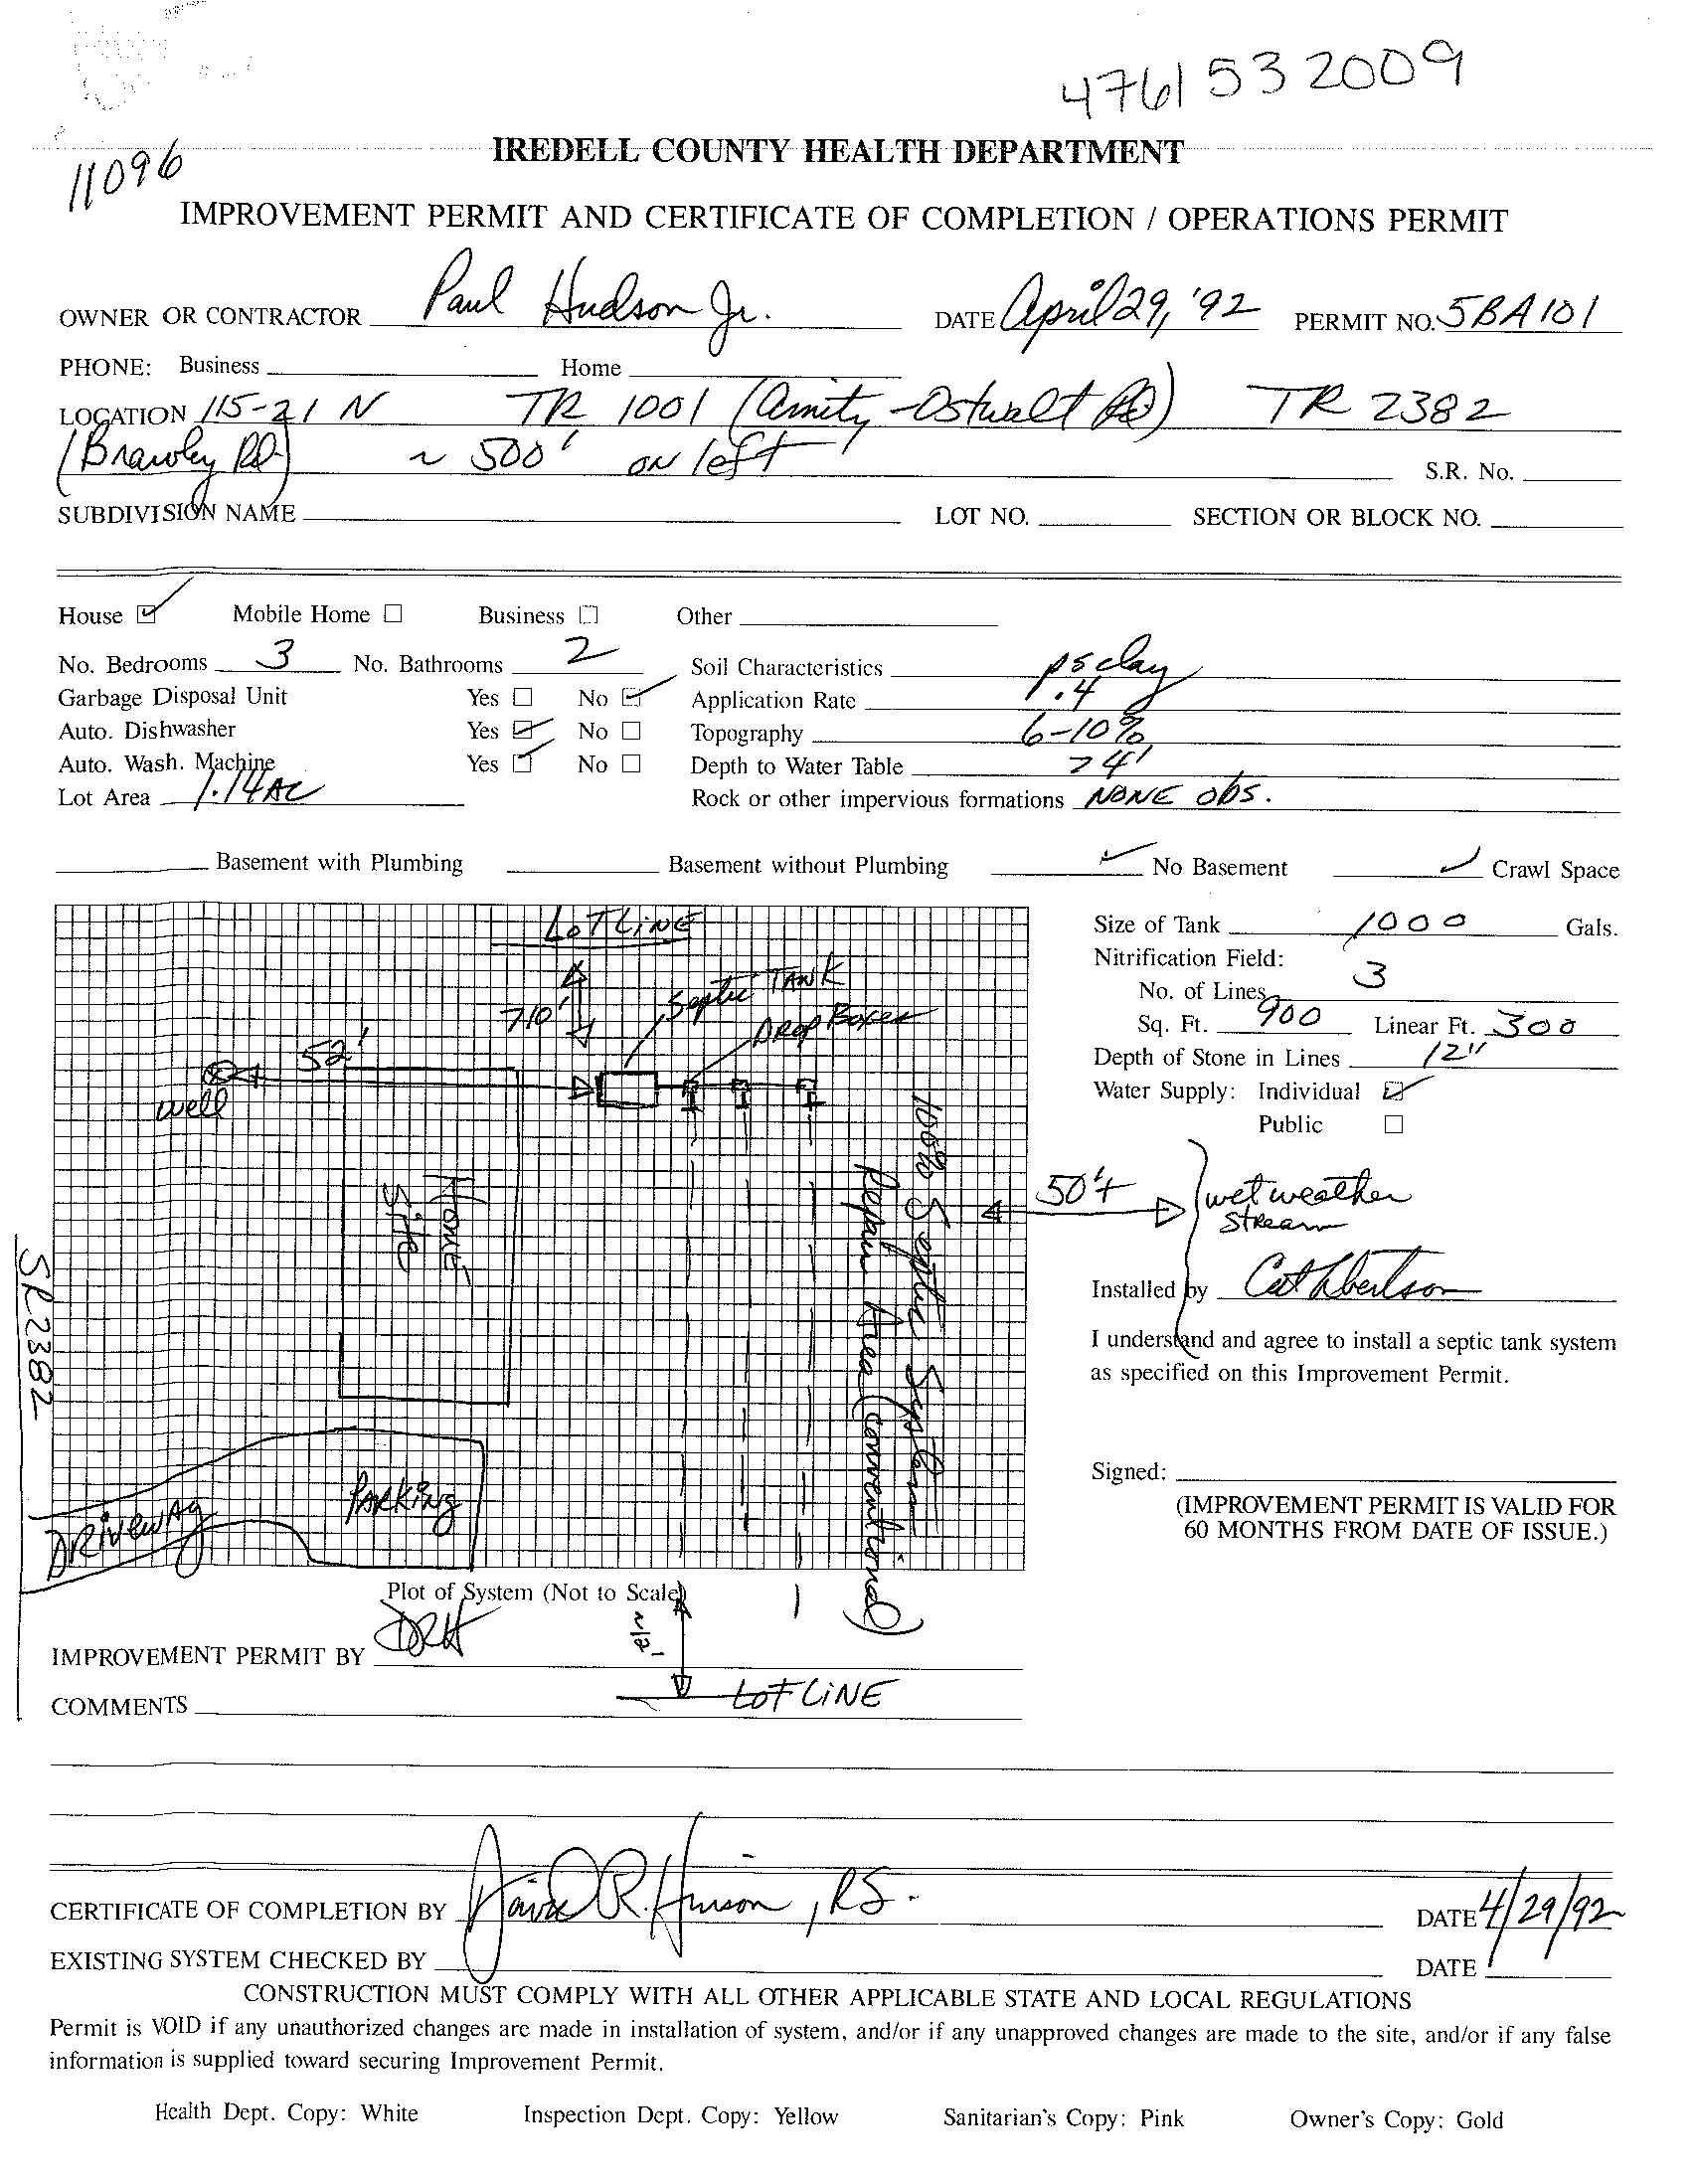 4761 53 2009
IREDELL COUNTY HEALTH DEPARTMENT
11096
IMPROVEMENT PERMIT AND CERTIFICATE OF COMPLETION / OPERATIONS PERMIT
OWNER OR CONTRACTOR Paul Hudson Jr. DATE April 29, '92 PERMIT NO. 5BA101
PHONE: Business Home
LOCATION 115-21 N TR 1001 (Amity-Ostwalt Rd) TR 2382
(Brawley Rd) ~ 500' on left S.R. No.
SUBDIVISION NAME LOT NO. SECTION OR BLOCK NO.
House ☑ Mobile Home ☐ Business ☐ Other
No. Bedrooms 3 No. Bathrooms 2 Soil Characteristics ps clay
Garbage Disposal Unit Yes ☐ No ☑ Application Rate .4
Auto. Dishwasher Yes ☑ No ☐ Topography 6-10%
Auto. Wash. Machine Yes ☑ No ☐ Depth to Water Table >4'
Lot Area 1.14 AC Rock or other impervious formations NONE obs.
Basement with Plumbing Basement without Plumbing ✓ No Basement ✓ Crawl Space
LOT LINE
Septic TANK
>10'
DROP Boxes
52'
well
Home
Site
100% Septic System
Repair Area (conventional)
SR 2382
PARKING
DRIVEWAY
Size of Tank 1000 Gals.
Nitrification Field:
No. of Lines 3
Sq. Ft. 900 Linear Ft. 300
Depth of Stone in Lines 12"
Water Supply: Individual ☑
Public ☐
50'+
wet weather
stream
Installed by Cuthbertson
I understand and agree to install a septic tank system
as specified on this Improvement Permit.
Signed:
(IMPROVEMENT PERMIT IS VALID FOR
60 MONTHS FROM DATE OF ISSUE.)
Plot of System (Not to Scale)
~12'
IMPROVEMENT PERMIT BY DRH
COMMENTS LOT LINE
CERTIFICATE OF COMPLETION BY David R. Hinson, RS. DATE 4/29/92
EXISTING SYSTEM CHECKED BY DATE
CONSTRUCTION MUST COMPLY WITH ALL OTHER APPLICABLE STATE AND LOCAL REGULATIONS
Permit is VOID if any unauthorized changes are made in installation of system, and/or if any unapproved changes are made to the site, and/or if any false
information is supplied toward securing Improvement Permit.
Health Dept. Copy: White Inspection Dept. Copy: Yellow Sanitarian's Copy: Pink Owner's Copy: Gold